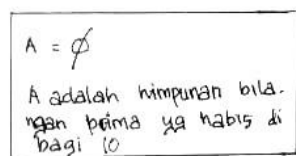 A = ∅
A adalah himpunan bila-
ngan prima yg habis di
bagi 10